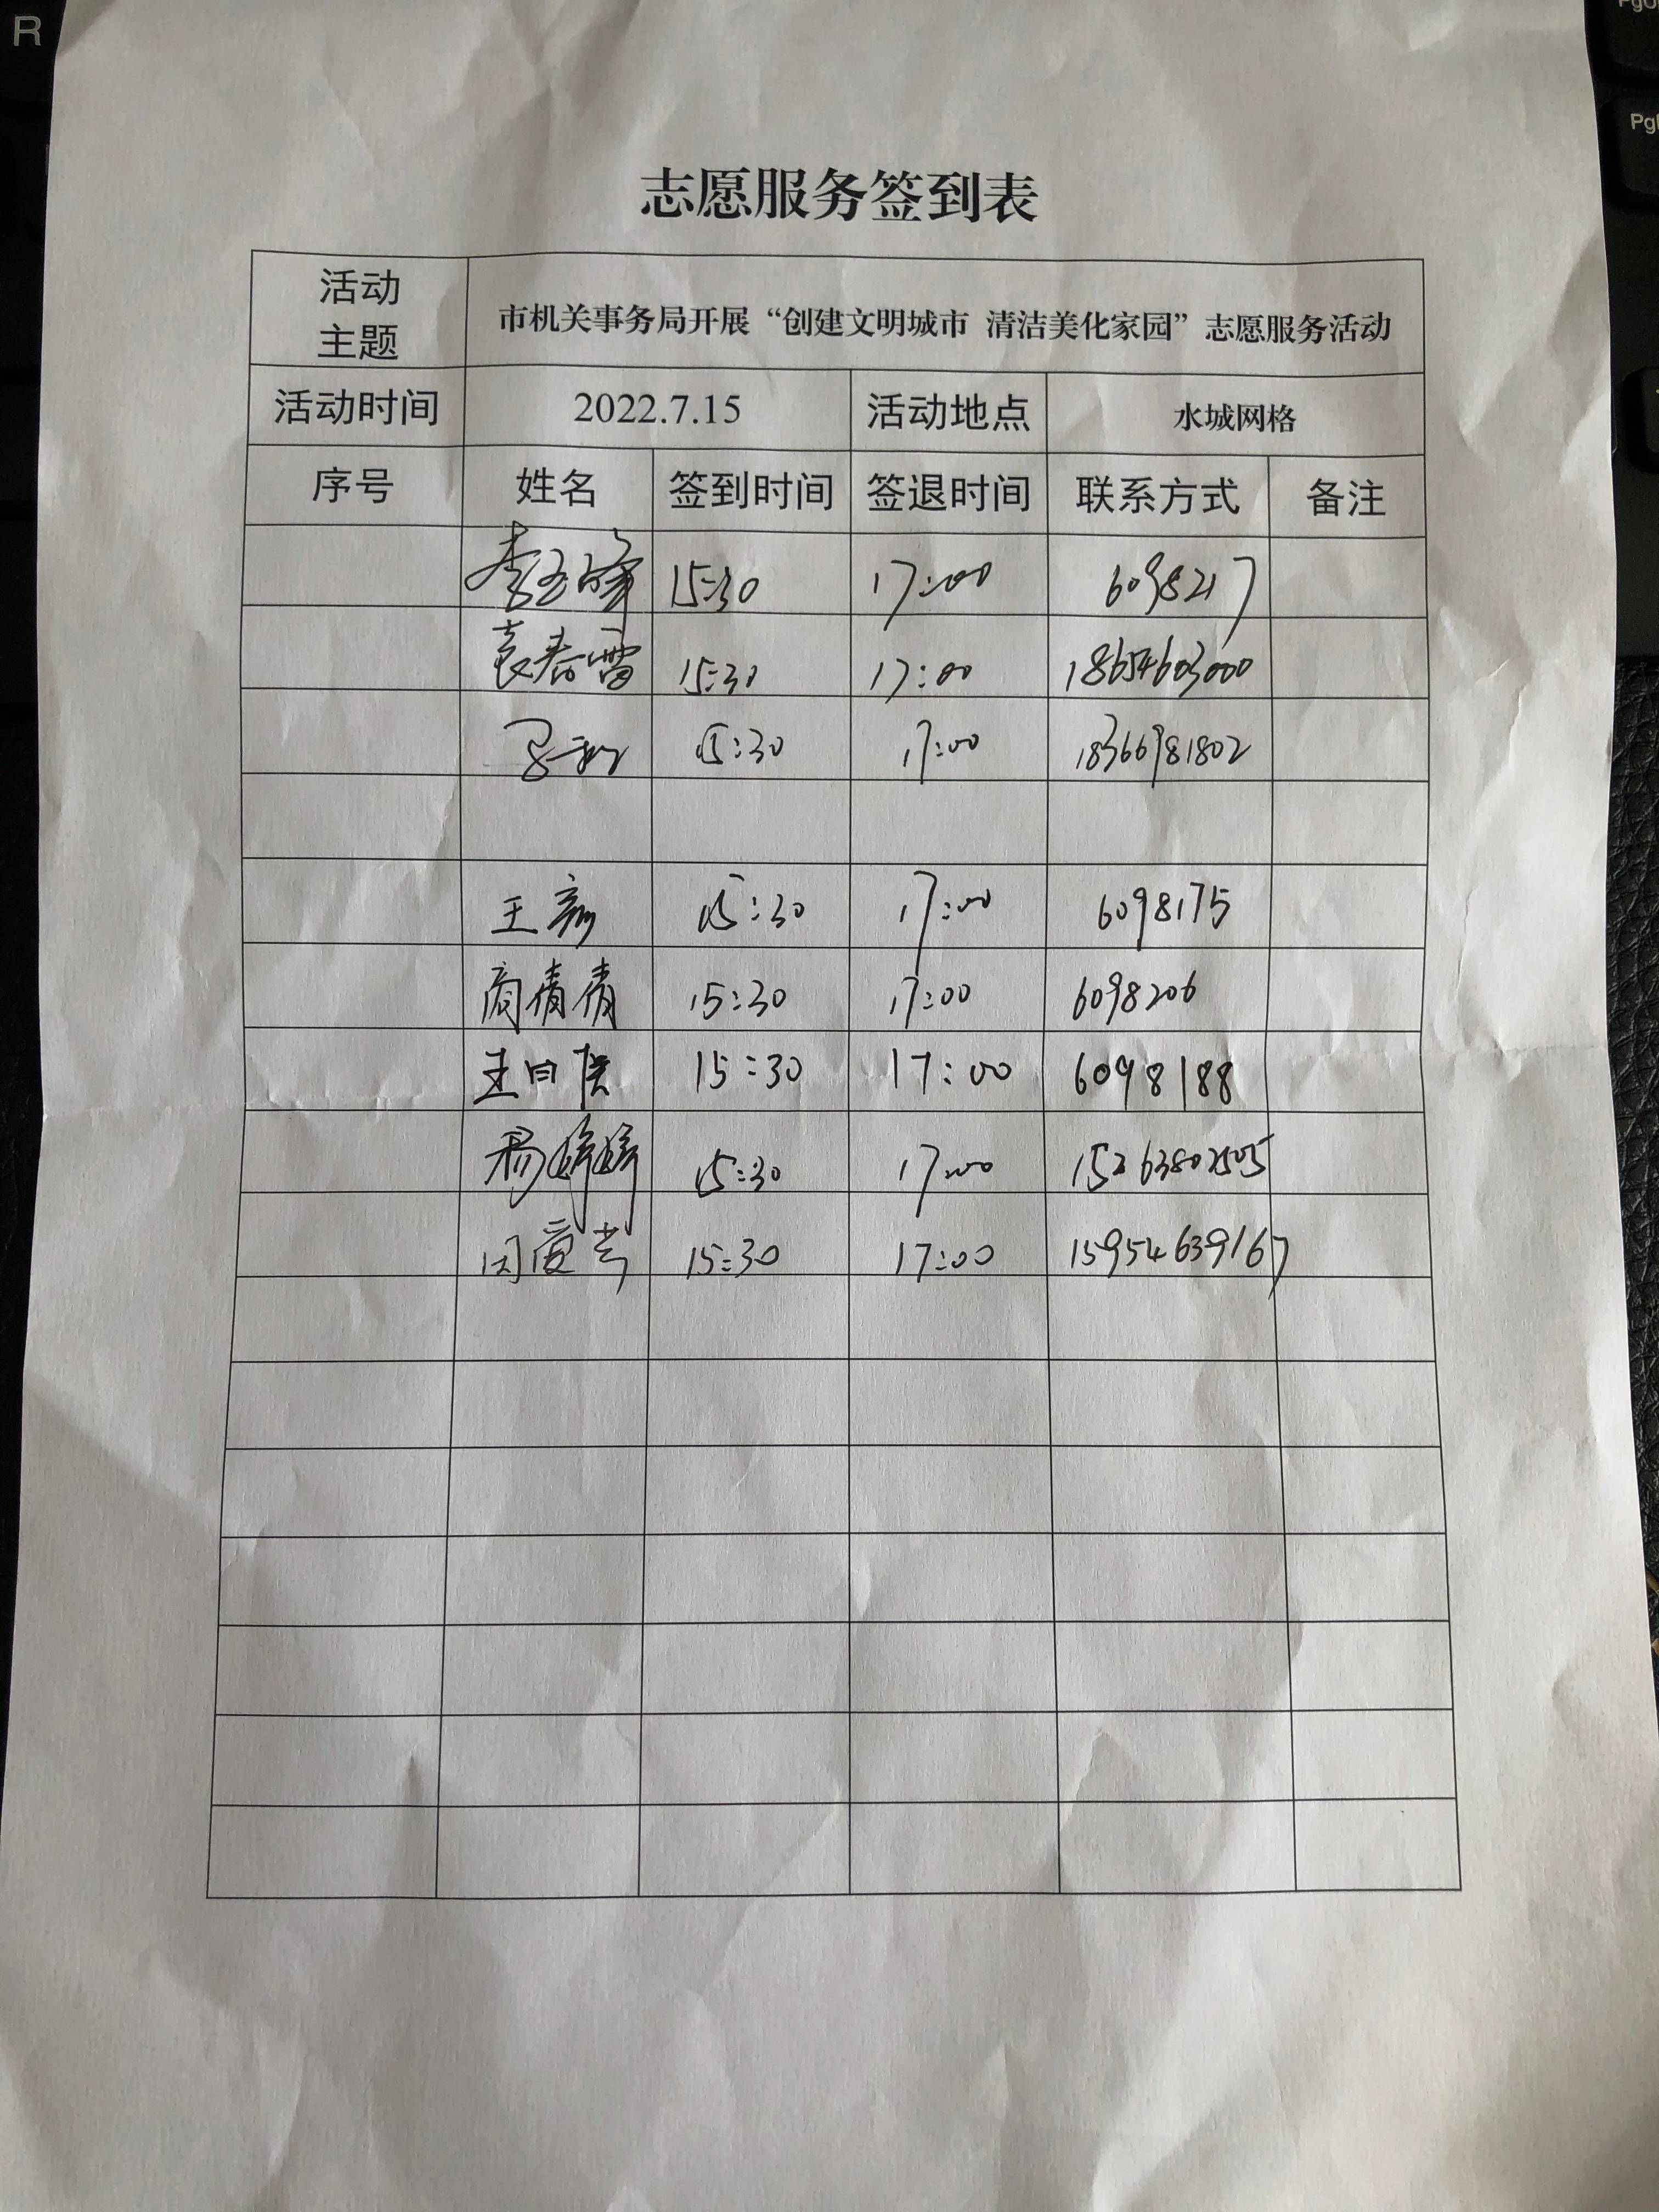 R
PgU
Pg
志愿服务签到表
活动
主题
市机关事务局开展“创建文明城市 清洁美化家园”志愿服务活动
活动时间 2022.7.15 活动地点 水城网格
序号 姓名 签到时间 签退时间 联系方式 备注
15:30 17:00 6098217
袁春雷 15:30 17:00 18654603000
15:30 17:00 18366981802
王彦 15:30 17:00 6098175
商倩倩 15:30 17:00 6098206
15:30 17:00 6098188
杨婷婷 15:30 17:00 15263802505
15:30 17:00 15954639167